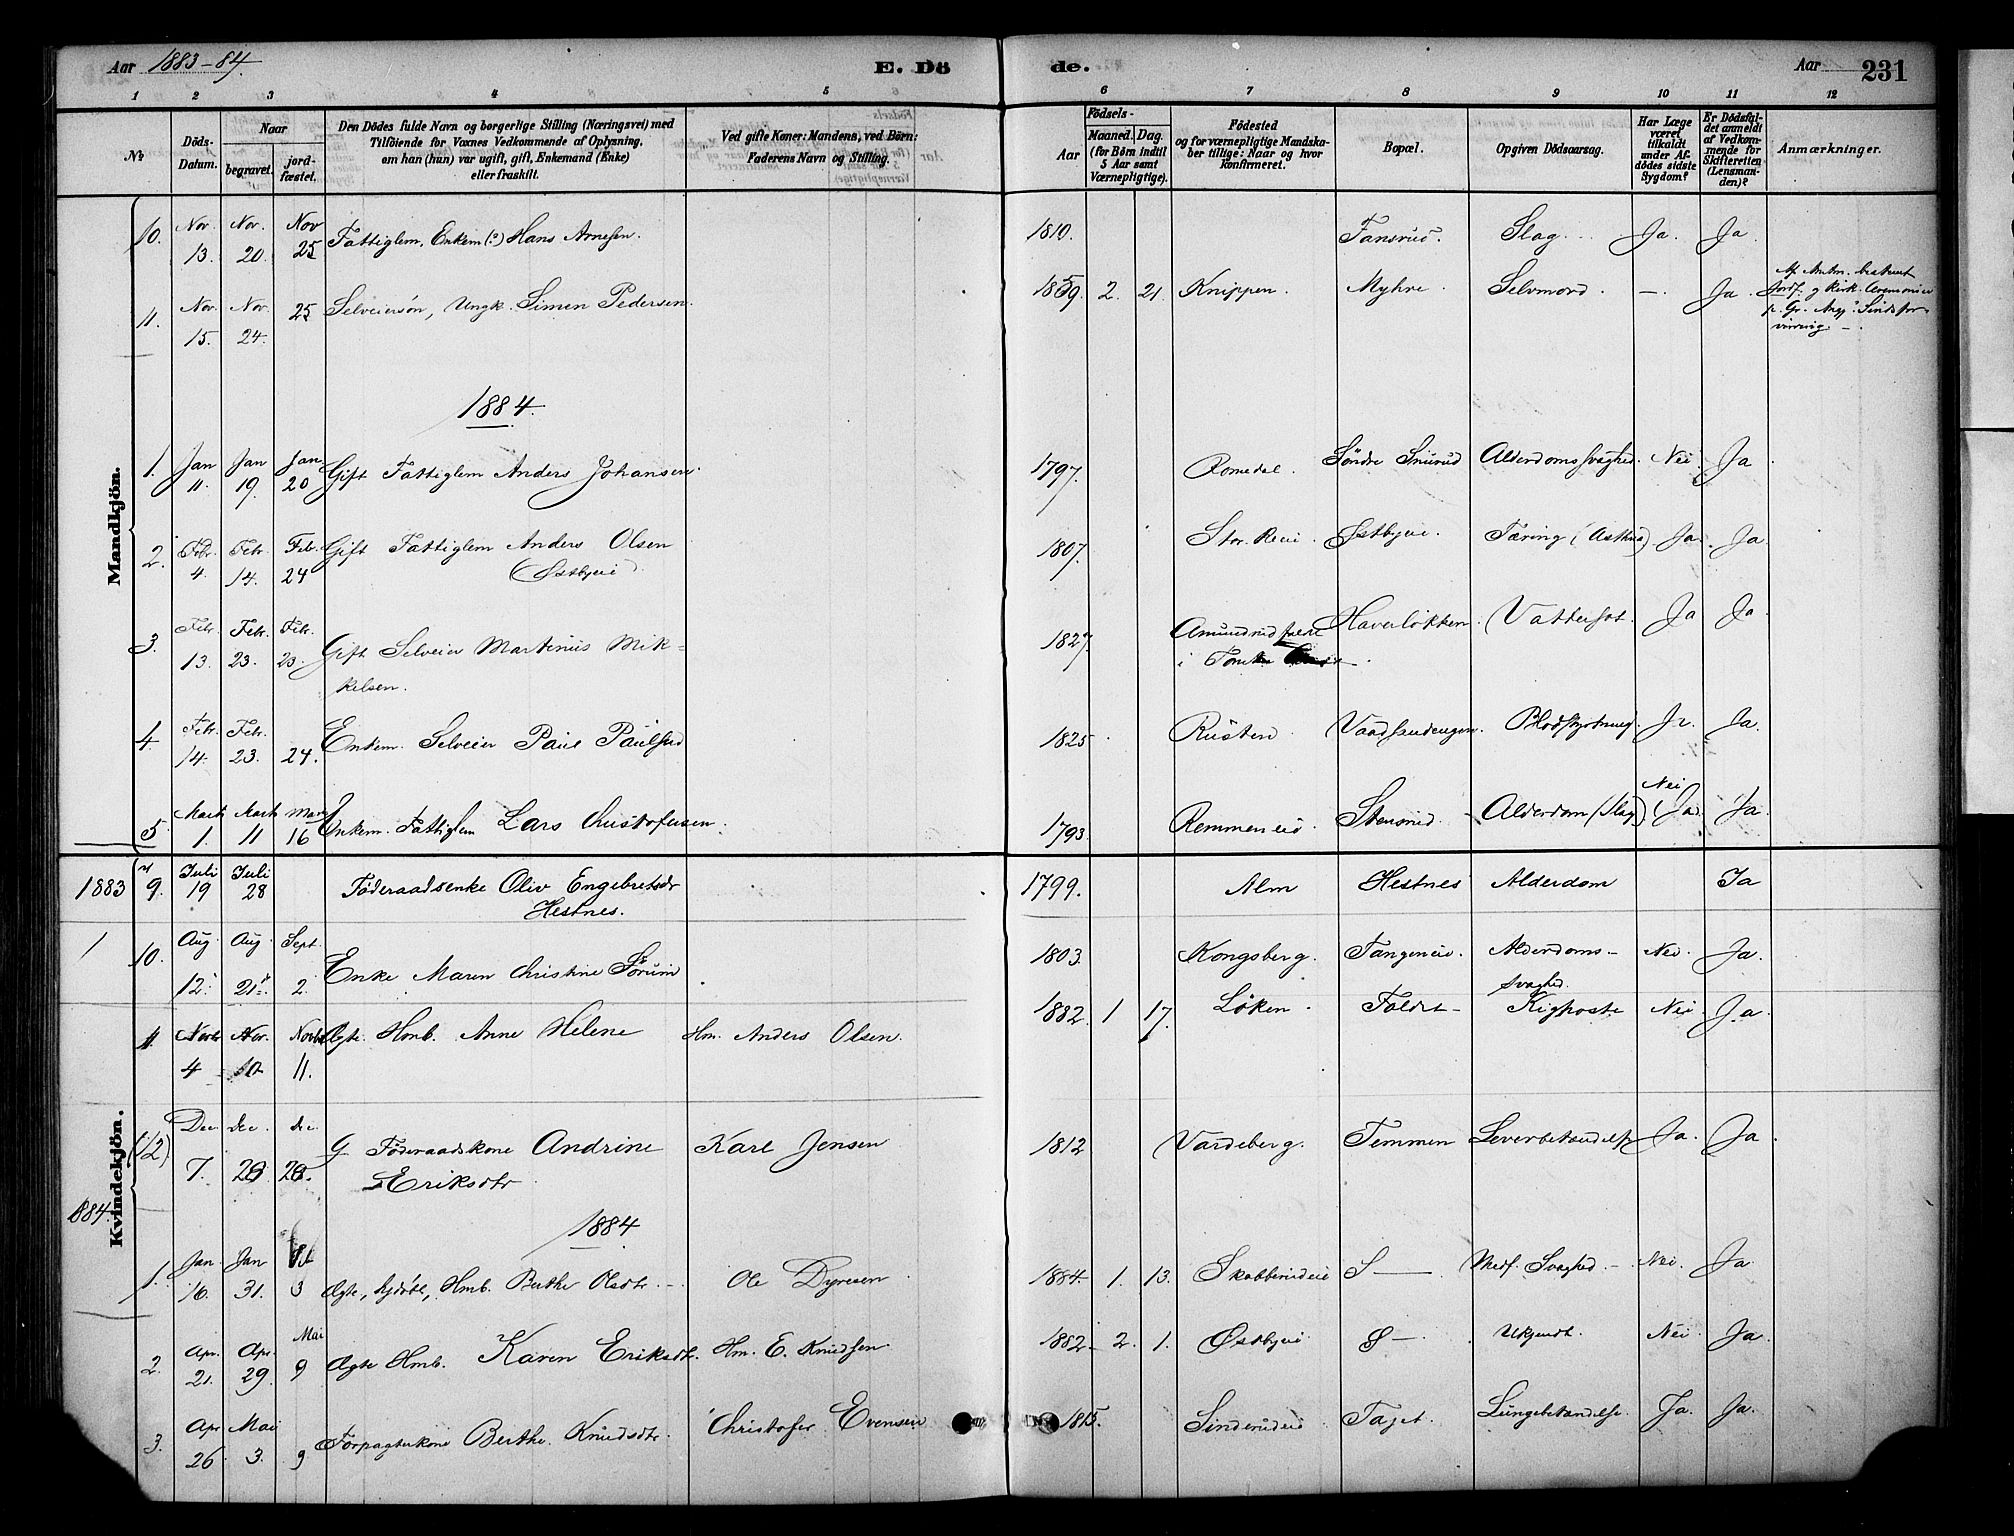 Aar 1883-84.
E. Dö
de.
Aar
231
1 2 3 4 5 6 7 8 9 10 11 12
№
Döds-Datum.
Naar
begravet.
jord-fæstet.
Den Dödes fulde Navn og borgerlige Stilling (Næringsvei) med
Tilföiende for Voxnes Vedkommende af Oplysning,
om han (hun) var ugift, gift, Enkemand (Enke)
eller fraskilt.
Ved gifte Koner: Mandens, ved Börn:
Faderens Navn og Stilling.
Födsels-
Aar
Maaned. Dag.
(for Børn indtil
5 Aar samt
Værnepligtige).
Födested
og for værnepligtige Mandska-
ber tillige: Naar og hvor
konfirmeret.
Bopæl.
Opgiven Dödsaarsag.
Har Læge
været
tilkaldt
under Af-
dödes sidste
Sygdom?
Er Dödsfal-
det anmeldt
af Vedkom-
mende for
Skifteretten
(Lensman-
den)?
Anmærkninger.
Mandkjön.
10. Nov. 13. Nov. 20. Nov 25 Fattiglem, Enkem (?) Hans Arnesen. 1810. Fansrud. Slag. Ja. Ja.
11. Nov. 15. Nov. 24. 25 Selveiersön, Ungk. Simen Pedersen. 1859. 2. 21. Knippen. Myhre. Selvmord. — Ja.
1884.
1. Jan 11. Jan 19. Jan 20 Gift Fattiglem Anders Johansen. 1797. Romedal. Söndre Snurud Alderdomssvaghed. Nei. Ja
2. Febr. 4. Febr. 14. Febr. 24 Gift Fattiglem Anders Olsen
(Østbyeie). 1807. Stor. Reie. Østbyeie. Tæring (Asthma) Ja. Ja.
3. Febr. 13. Febr. 23. Febr. 23. Gift Selveier Martinus Mik-
kelsen. 1827. Amundrud
i Haverlökken. Vattersot. Ja Ja
4 Febr. 14. Febr. 23. 24. Enkem. Selveier Paul Paulsen 1825 Rusten. Blodstyrtning. Ja. Ja.
5. Marts 1. Marts 11 Marts 16 Enkem. Fattiglem Lars Christofersen. 1793. Remmeneie. Stensrud. Alderdom (Slag) Nei (Ja) Ja.
Kvindekjön.
1883 9. Juli 19 Juli 28 Föderaadsenke Oliv Engebretsdr
Hestnes. 1799. Alm Hestnes Alderdom Ja
10. Aug. 12. Aug. 21. Sept. 2. Enke Maren Christine Sørum 1803. Kongsberg. Tangeneie. Alderdoms-
svaghed. Nei. Ja.
11. Novbr 4 Nov. 10 Novbr 11. Ægte. Hmb. Anne Helene Hm. Anders Olsen. 1882. 1 17. Löken. Faldet Kighoste Nei Ja.
(12) Dec 7. Dec. 28 Dec. G. Föderaadskone Andrine
Eriksdtr Karl Jensen 1812 Vardeberg. Temmen Leverbetændelse Ja. Ja
1884.
1884
1. Jan. 16. Jan 31. 3 Ægte, hjdöbt, Hmb. Berthe Olsdtr. Ole Dyresen 1884. 1. 13. Skabberudeie S— Medf. Svaghed. Nei. Ja
2. Apr. 21. Apr. 29. Mai 9 Ægte Hmb. Karen Eriksdtr. Hm. E. Knudsen. 1882 2. 1. Østbyeie Ø— Ukjendt. Nei. Ja.
3. Apr 26. Mai 3. 9 Forpagterkone Berthe Knudsdtr. Christofer Evensen 1815. Sinderudeie Taget. Lungebetændelse. Ja. Ja.